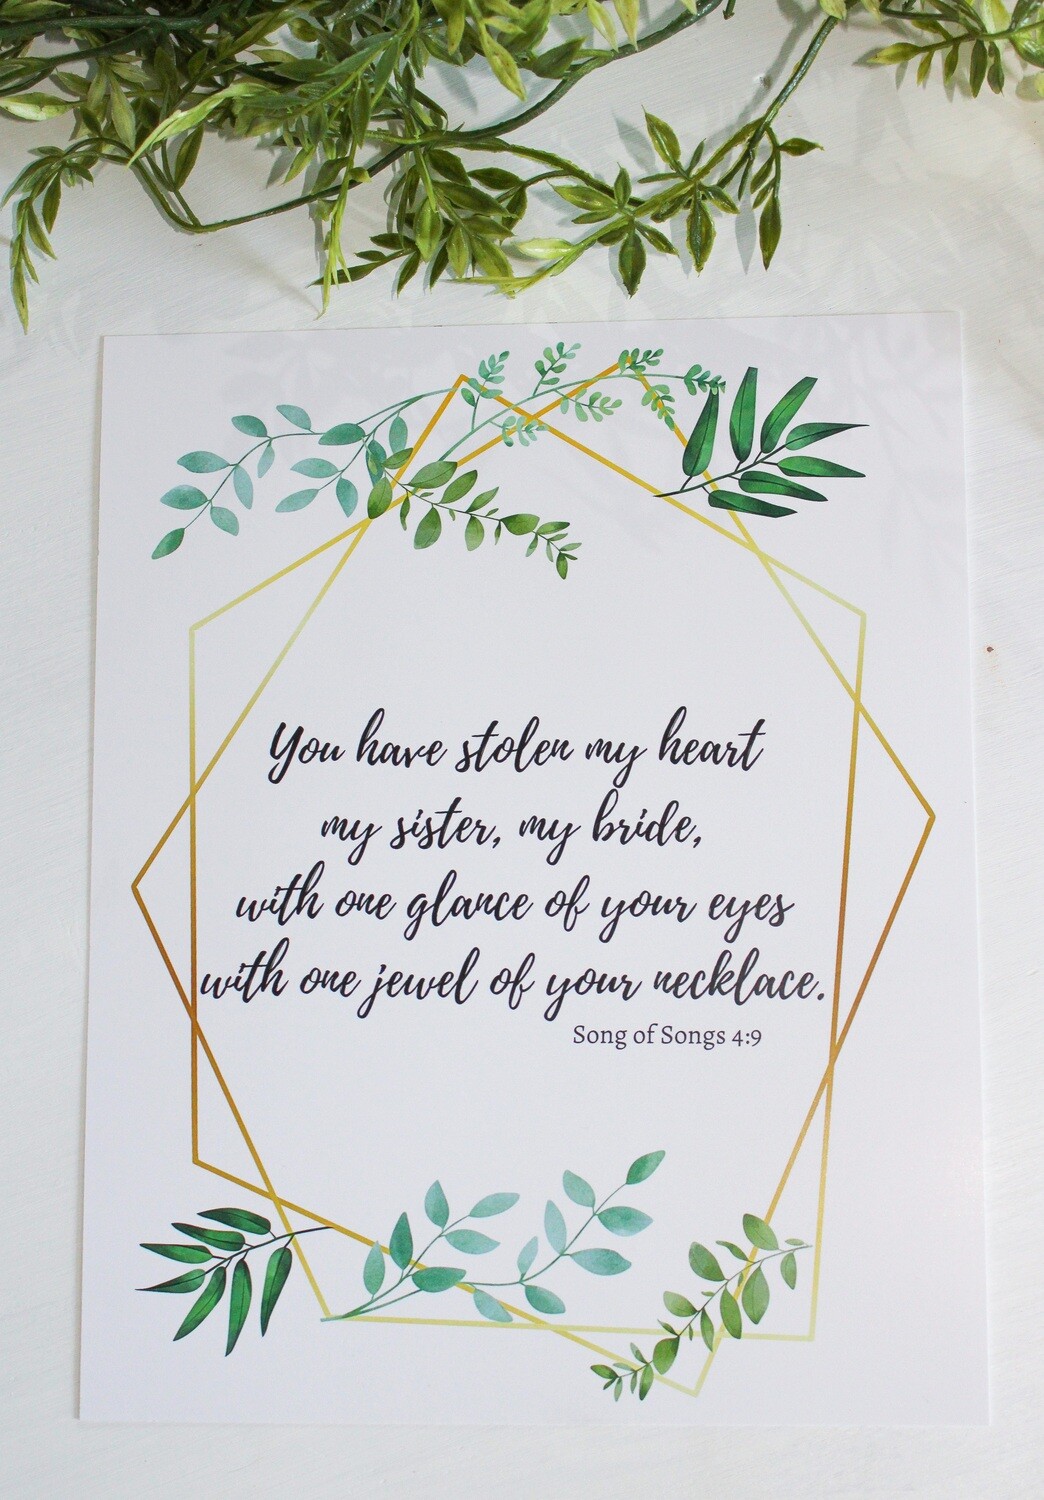 You have stolen my heart
my sister, my bride,
with one glance of your eyes
with one jewel of your necklace.
Song of Songs 4:9